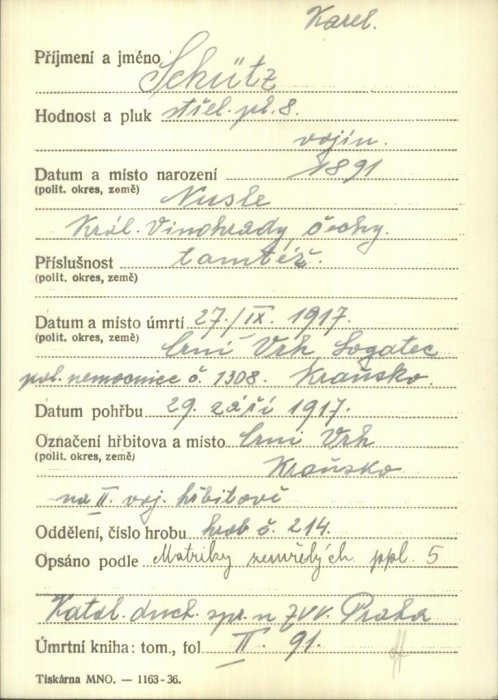 Karel.
Příjmení a jméno Schütz
Hodnost a pluk střel. pl. 8.
vojín.
Datum a místo narození 1891
(polit. okres, země) Nusle
Král. Vinohrady, Čechy.
Příslušnost tamtéž.
(polit. okres, země)
Datum a místo úmrtí 27./IX. 1917.
(polit. okres, země) Črni Vrh, Logatec
pol. nemocnice č. 1308. Kraňsko.
Datum pohřbu 29. září 1917.
Označení hřbitova a místo Črni Vrh
(polit. okres, země) Kraňsko
na II. voj. hřbitově
Oddělení, číslo hrobu hrob č. 214.
Opsáno podle Matriky zemřelých ppl. 5
Katol. duch. spr. u ZVV. Praha
Úmrtní kniha: tom., fol II. 91.
Tiskárna MNO. — 1163-36.